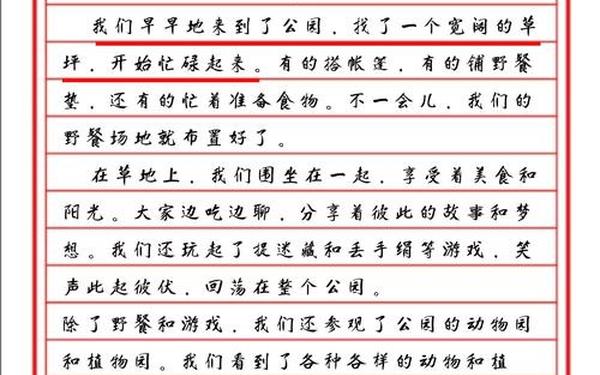 我们早早地来到了公园，找了一个宽阔的草
坪，开始忙碌起来。有的搭帐篷，有的铺野餐
垫，还有的忙着准备食物。不一会儿，我们的
野餐场地就布置好了。
在草地上，我们围坐在一起，享受着美食和
阳光。大家边吃边聊，分享着彼此的故事和梦
想。我们还玩起了捉迷藏和丢手绢等游戏，笑
声此起彼伏，回荡在整个公园。
除了野餐和游戏，我们还参观了公园的动物园
和植物园。我们看到了各种各样的动物和植